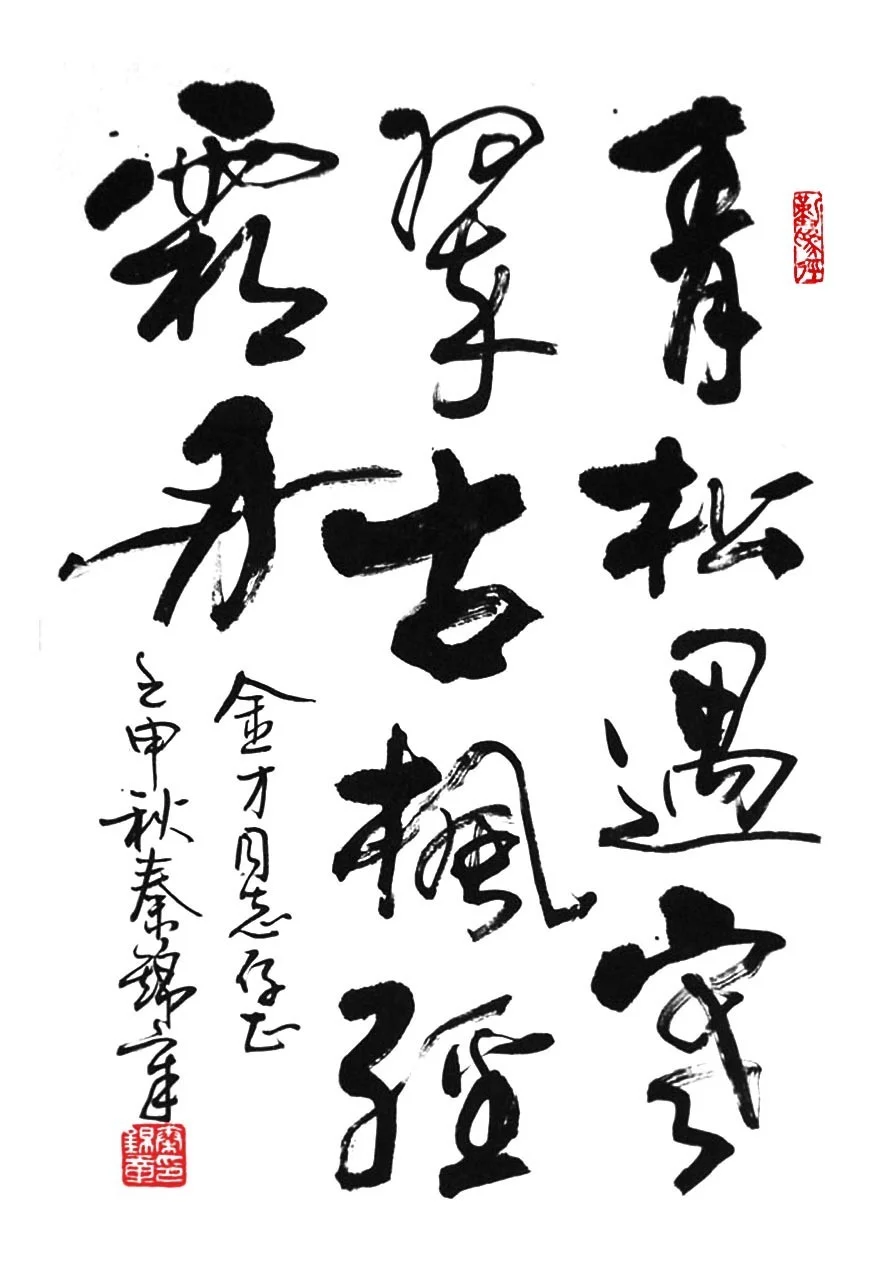 青松遇寒
翠古楓經
霜丹
金才同志存正
壬申秋秦錦章
秦錦章印